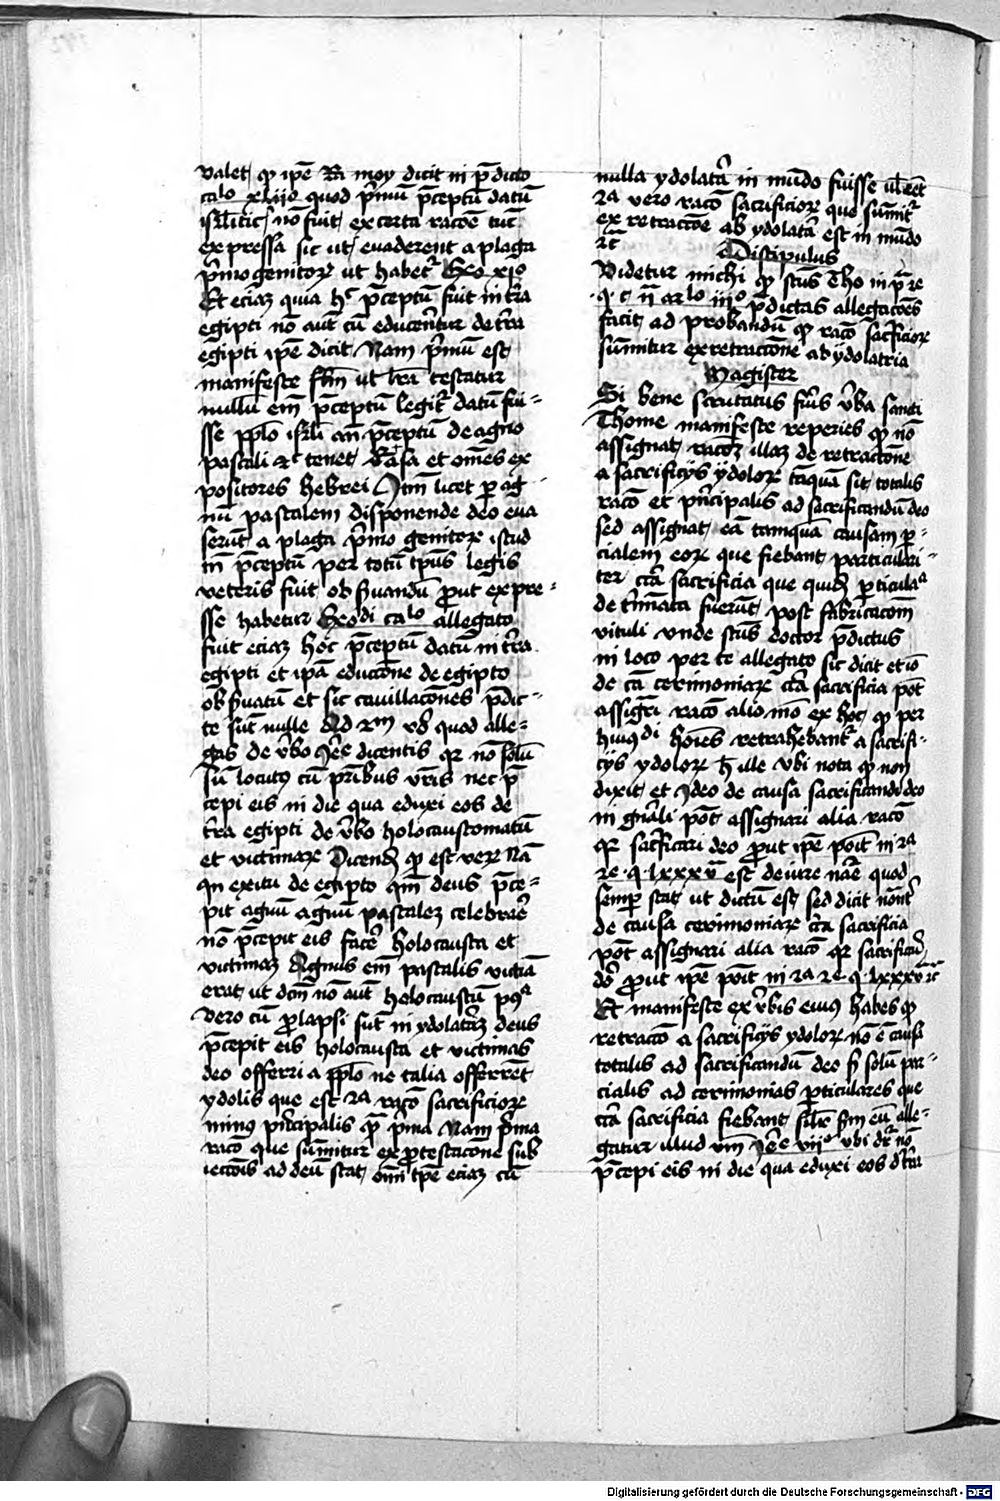 valet qͥ ip̄e Ra moy dicit in p̄dicto
caᵒ xliiiᵒ quod p̄mū p̄ceptū datū
isrl̄itic̄ nō fuit ex certa racōe tūc
expressa sic ut evaderent a plaga
p̄mogenitoꝝ ut habet᷑ Exo xiiᵒ
Et eciaꝫ quia hᶜ p̄ceptū fuit in tr̄a
egipti nō aut̄ cū educer̄ntur de tr̄a
egipti ip̄e dicit Nam p̄mū est
manifeste flm̄ ut lr̄a testatur
nullū em̄ p̄ceptū legit᷑ datū fui⸗
sse pp̄lo isrl̄ an̄ p̄ceptū de agno
pascali ⁊c̄ tenet Ra sa et om̄es ex
positores hebrei Itm̄ licet per ag
nū pascalem disponende deo eva
serūt a plaga p̄mo genitoꝝ istud
tn̄ p̄ceptū per totū tp̄us legis
veteris fuit obs̄uandū ꝓut expre⸗
sse habetur Exodi caˡᵒ allegato
fuit eciaꝫ hoc p̄ceptū datū in tr̄a
egipti et ip̄a educcōne de egipto
obs̄uatū et sic cavillacōnes p̄dic⸗
te sūt nulle Ad 2ᵐ vᵒ quod alle⸗
gas de v̄bo Jer̄ dicentis qꝛ nō solū
sū locutꝰ cū pr̄ibus vr̄is nec p̄
cepi eis in die qua eduxi eos de
tr̄a egipti de v̄bo holocaustomatū
et victimaꝝ Dicendū qͥ est veꝝ Nā
qn̄ exitu de egipto qm̄ deus p̄ce⸗
pit agnū agnū pascaleꝫ celebrar̄e
nō p̄cepit eis facer̄ holocausta et
victimas Agnus em̄ pascalis victīa
erat ut dcm̄ nō aut̄ holocaustū pꝰqᵃ
vero cū ꝓlapsi sūt in ydolatriā deus
p̄cepit eis holocausta et victimas
deo offerri a pp̄lo ne talia offerrēt
ydolis que est 2ᵃ racō sacrificioꝝ
minꝰ pⁱncipalis qᵃ p̄ma Nam p̄ma
racō que sūmitur ex ꝓtestacōne sub
iectōis ad deū stat om̄i tp̄e eciaꝫ cū
nulla ydolatr̄a in mūdo fuisse ul̄ eēt
2ᵃ vero racō sacrificioꝝ que sūmit᷑
ex retraccōe ab ydolatr̄a est in mūdo
⁊c̄
Discipulus
Videtur michi qͥ sc̄us Tho in p̄ re
.q. c ii arˡᵒ iiiᵒ p̄dictas allegacōes
facit ad probandū qͥ racō sacr̄ficioꝝ
sūmitur ex retraccōne ab ydolatria
Magister
Si bene scrutatus fu̅is v̄ba sancti
Thome manifeste reperies qͥ nō
assignat racōeꝫ illaꝫ de retraccōne
a sacrificijs ydoloꝝ tāquā sit totalis
racō et pⁱncipalis ad sacrificandū deo
sed assignat eā tamquā causam p̲⸗
cialem eoꝝ que fiebant particulari⸗
ter cᵃ sacrificia que quidē p̲ticulaᵃ
de tᵉmīata fuerūt post fabricacōm
vituli vnde sc̄us doctor p̄dictus
in loco per te allegato sic dicit et iō
de cā cerimoniaꝝ cᵃ sacrificia pōt
assigͥri racō alio mō ex hoc qͥ per
huiꝰᵈⁱ hoīes retrahebant᷑ a sacrifi⸗
cijs ydoloꝝ h̄ ille vbi nota qͥ non
dixit et Ideo de causa sacrificandi deo
in gn̄ali pōt assignari alia racō
qꝛ sacr̄ficari deo ꝓut ip̄e pōit in 2ᵃ
2e .q. lxxxv est de iure nāe quod
semp̲ stat ut dictū est sed dicit nōnt̄
de causa cerimoniaꝝ cᵃ sacrificia
pōt assignari alia racō qꝛ sacrificiū
do̅ ꝓut ip̄e pōit in 2ᵃ 2e .q. lxxxv ⁊c̄
Et manifeste ex v̄bis eiuꝰ habes qͥ
retraccō a sacrificijs ydoloꝝ nō ē causa
totalis ad sacrificandū deo s̄ solū par⸗
cialis ad cerimonias p̲ticulares que
cᵃ sacrificia fiebant silr̄ sm̄ eū alle⸗
gatur illud vm̄ Jer̄e viiᵒ vbi dr̄ nō
p̄cepi eis in die qua eduxi eos d̄ tr̄a
Digitalisierung gefördert durch die Deutsche Forschungsgemeinschaft - DFG